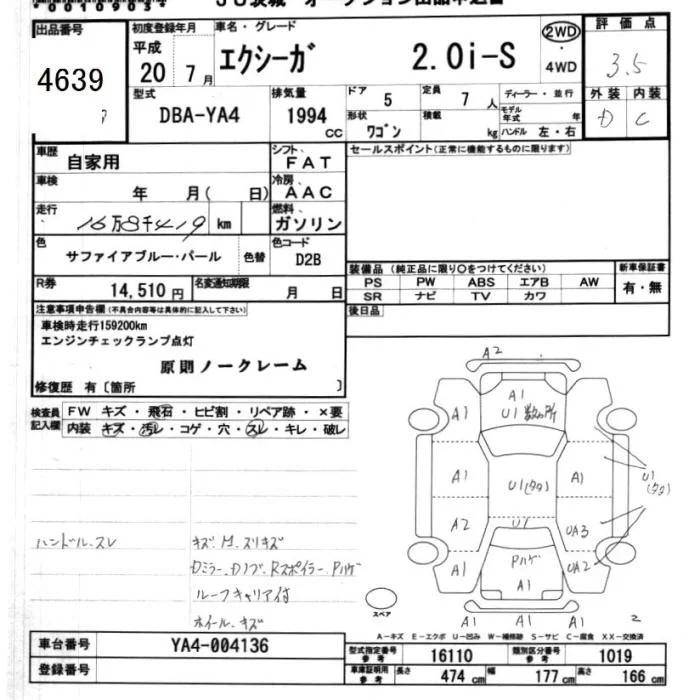 出品番号
4639
初度登録年月
平成
20 年 7 月
車名・グレード
エクシーガ 2.0i-S
2WD
・
4WD
評価点
3.5
外装 内装
D C
型式
DBA-YA4
排気量
1994 cc
ドア 5
形状 ワゴン
定員 7 人
積載 kg
ディーラー・並行
モデル年式 年
ハンドル 左・右
車歴 自家用
シフト FAT
セールスポイント(正常に機能するものに限ります)
車検 年 月( 日)
冷房 AAC
走行 16万8千419 km
燃料 ガソリン
色 サファイアブルー・パール 色替
色コード D2B
装備品 (純正品に限り○をつけてください)
新車保証書
PS PW ABS エアB AW
有・無
SR ナビ TV カワ
R券 14,510円
名変通知期限 月 日
後日品
注意事項申告欄(不具合内容等は具体的に記入して下さい)
車検時走行159200km
エンジンチェックランプ点灯
原則ノークレーム
修復歴 有〔箇所 〕
検査員記入欄
FW キズ・飛石・ヒビ割・リペア跡・×要
内装 キズ・汚レ・コゲ・穴・スレ・キレ・破レ
ハンドル.スレ
キズ.M.スリキズ
Dミラー.Dノブ.Rスポイラー.Pハゲ
ルーフキャリア付
ホイール.キズ
A2
A1
U1 数ヵ所
A1
A1
A1
U1(タタ)
A1
U1
(タタ)
A2
U1
UA3
A1
Pハゲ
A1
UA2
A1
A1
A1
2
スペア
A-キズ E-エクボ U-凹み W-補修跡 S-サビ C-腐食 XX-交換済
車台番号 YA4-004136
登録番号
型式指定番号 参考 16110
類別区分番号 参考 1019
車庫証明用 参考 長さ 474 cm 幅 177 cm 高さ 166 cm